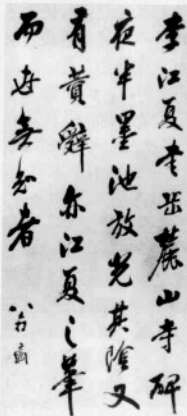 李江夏書岳麓山寺碑
夜半墨池放光其陰又
有贊辭亦江夏之筆
而世無知者